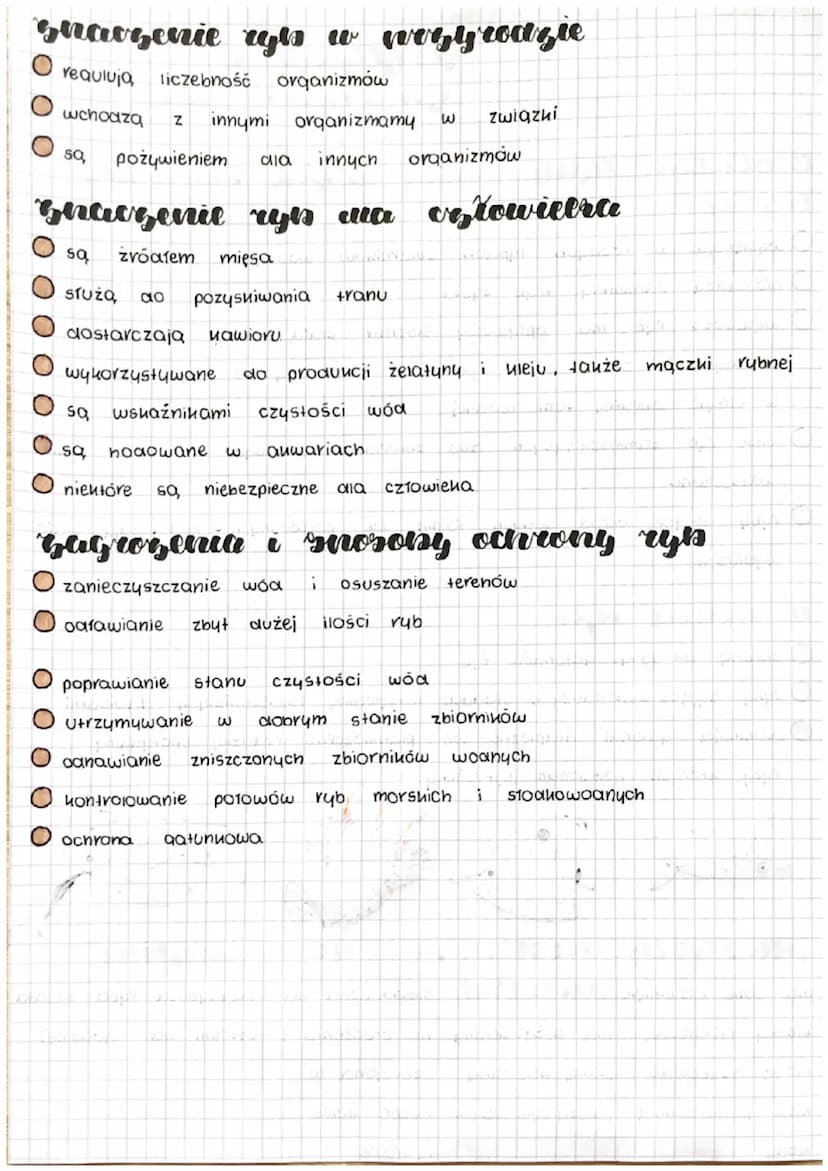 znaczenie ryb w przyrodzie
regulują liczebność organizmów
wchodzą z innymi organizmamy w związki
są pożywieniem dla innych organizmów
znaczenie ryb dla człowieka
są żródłem mięsa
służą do pozyskiwania tranu
dostarczają kawioru
wykorzystywane do produkcji żelatyny i kleju, także mączki rybnej
są wskaźnikami czystości wód
są hodowane w akwariach
niektóre są niebezpieczne dla człowieka
zagrożenia i sposoby ochrony ryb
zanieczyszczanie wód i osuszanie terenów
odławianie zbyt dużej ilości ryb
poprawianie stanu czystości wód
utrzymywanie w dobrym stanie zbiorników
odnawianie zniszczonych zbiorników wodnych
kontrolowanie połowów ryb morskich i słodkowodnych
ochrona gatunkowa